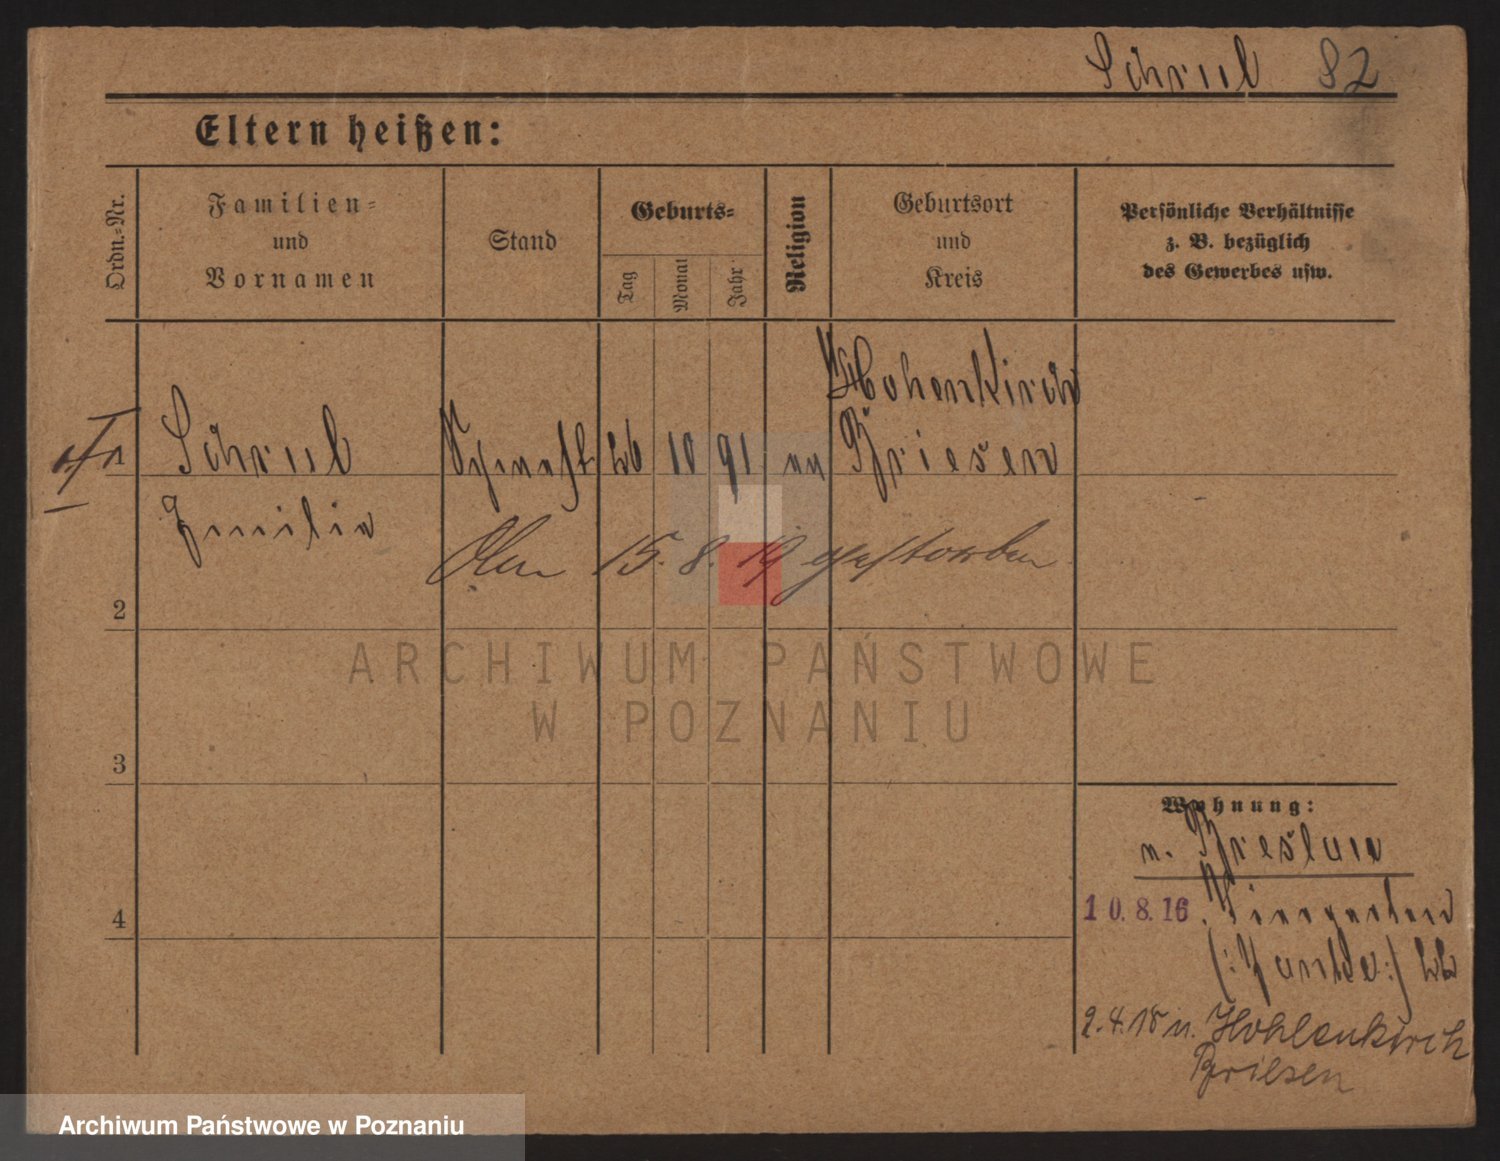 Schrul 82
Eltern heißen:
Ordn.-Nr.
Familien-
und
Vornamen
Stand
Geburts-
Tag
Monat
Jahr
Religion
Geburtsort
und
Kreis
Persönliche Verhältnisse
z. B. bezüglich
des Gewerbes usw.
Hohenkirch
1 Schrul 26 10 91 Briesen
Emilie
Den 15. 8. 19 gestorben
2
ARCHIWUM PAŃSTWOWE
W POZNANIU
3
Wohnung:
n. Breslau
10.8.16
4
2.4.18 n. Hohlenkirch
Briesen
Archiwum Państwowe w Poznaniu